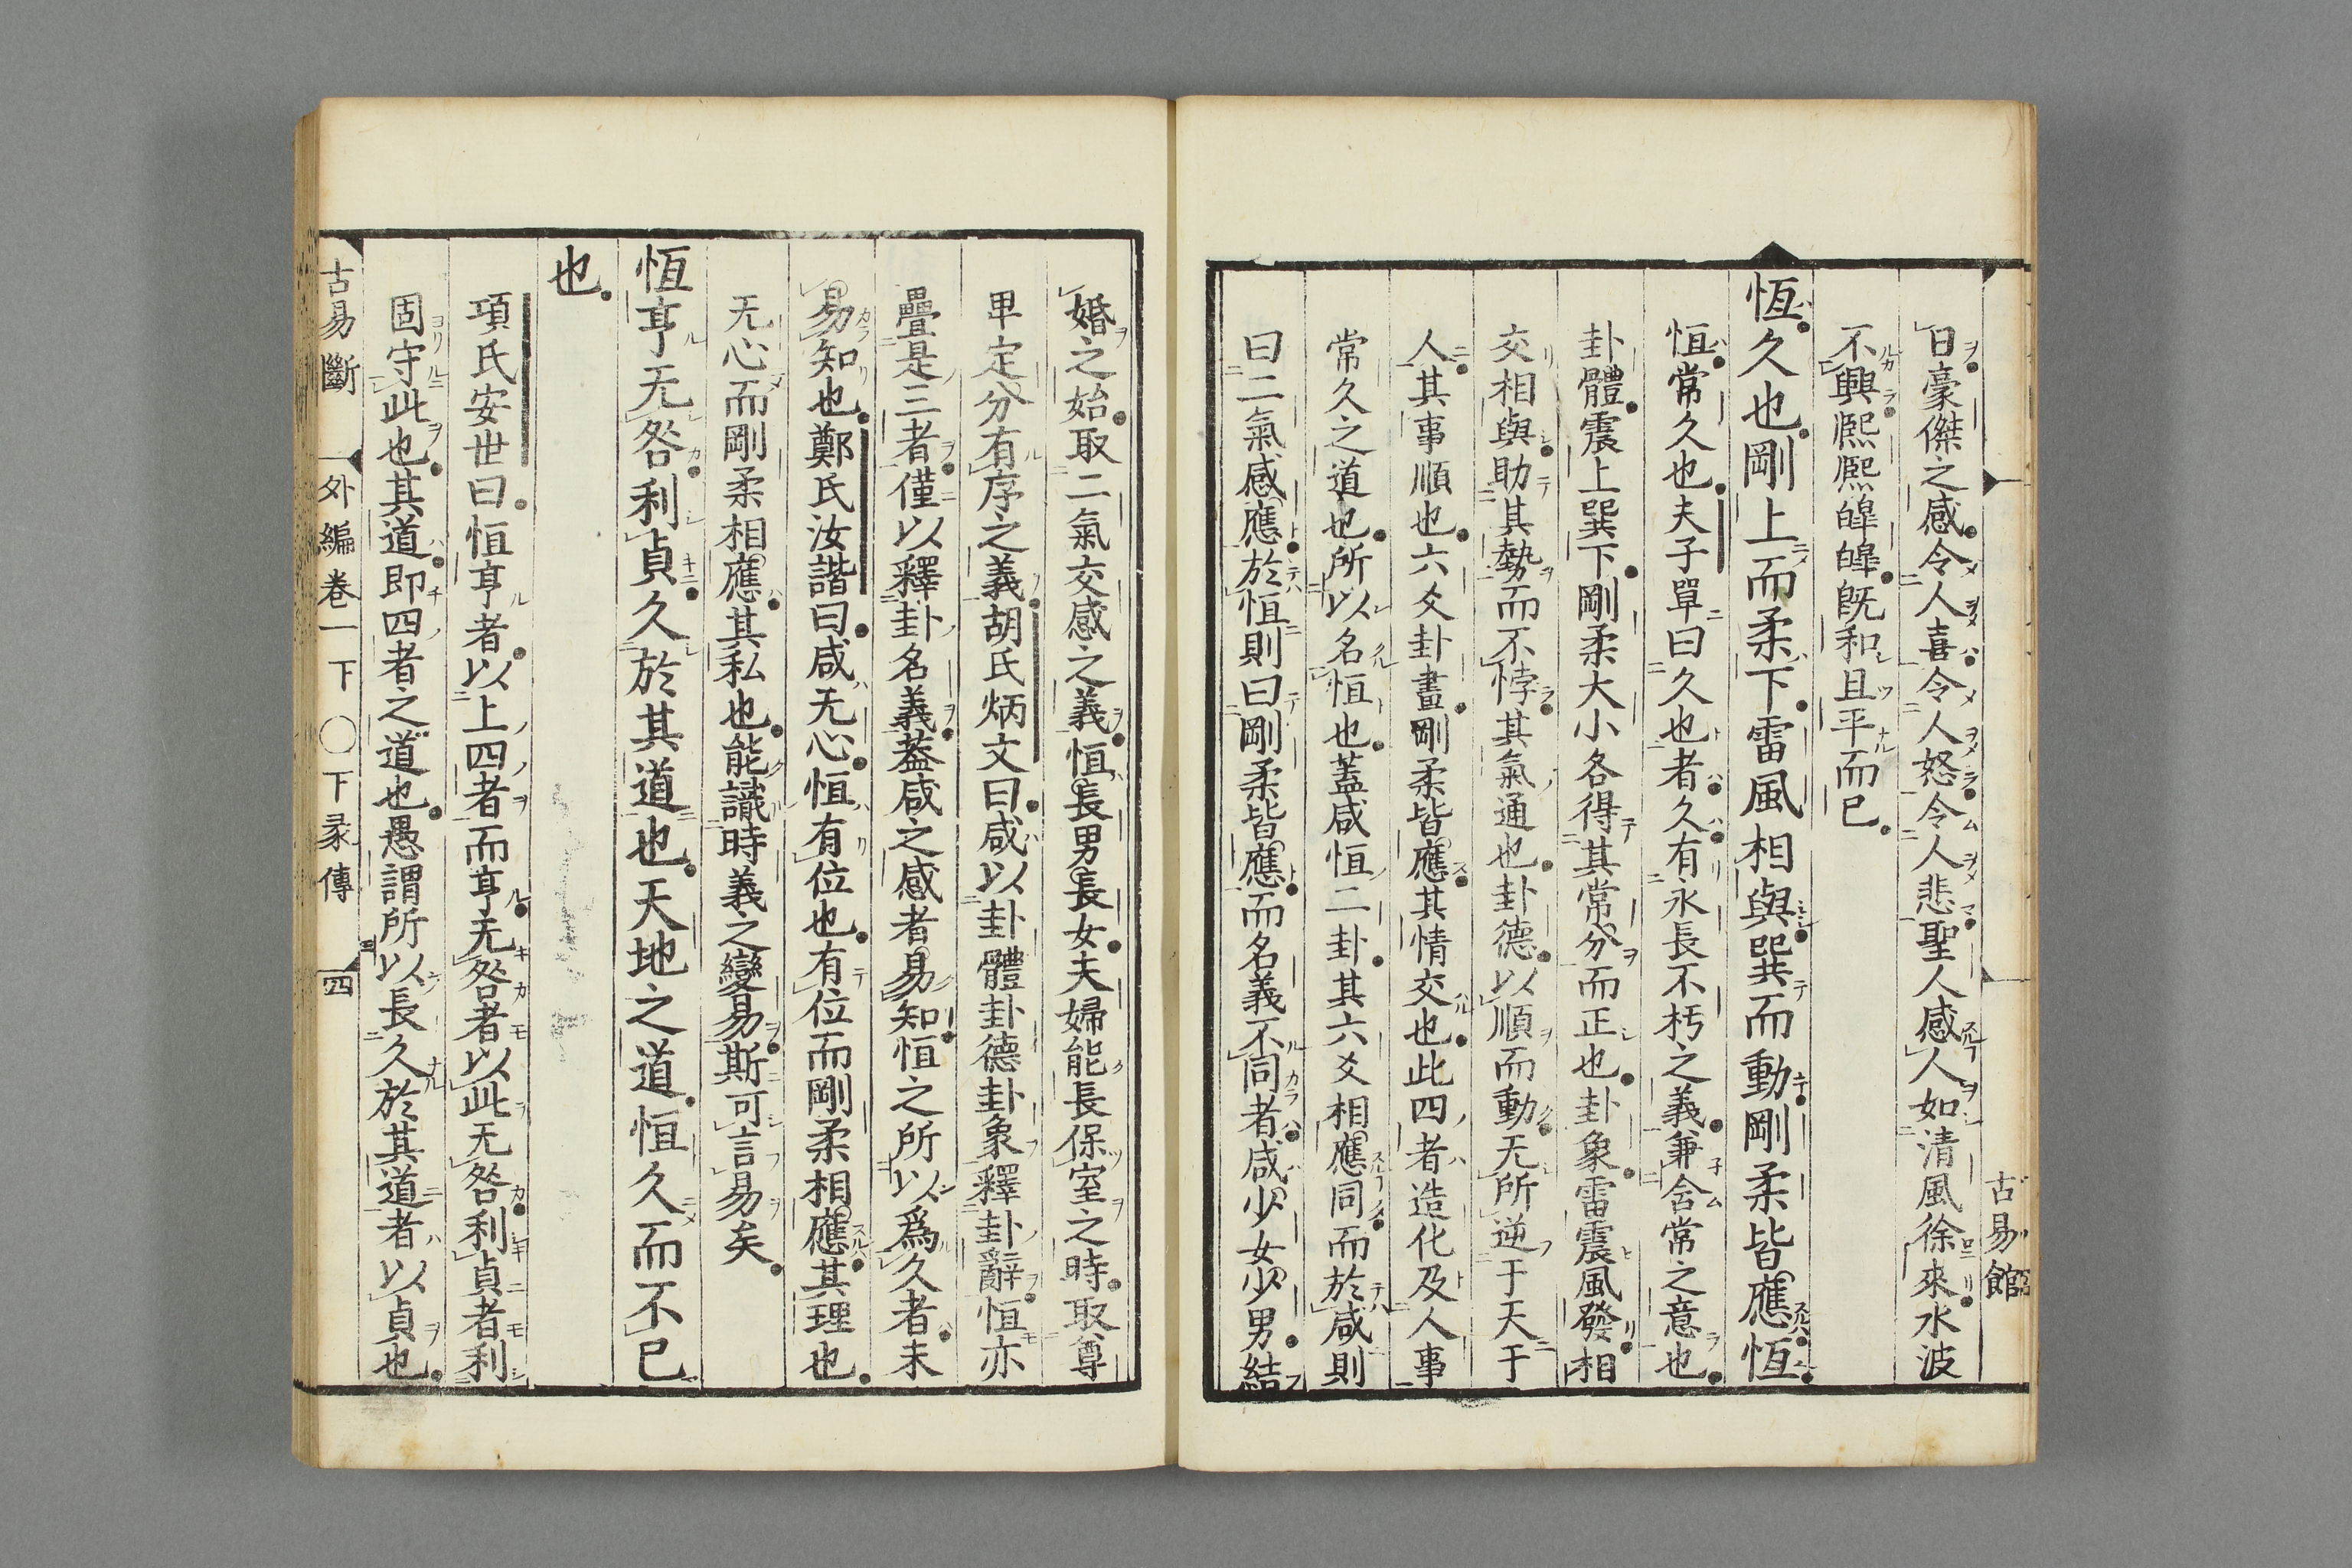 曰豪傑之感令人喜令人怒令人悲聖人感人如清風徐來水波
不興熈熈皥皥旣和且平而已
恆久也剛上而柔下雷風相與巽而動剛柔皆應恆
恒常久也夫子單曰久也者久有永長不朽之義兼含常之意也
卦體震上巽下剛柔大小各得其常分而正也卦象雷震風發相
交相與助其勢而不悖其氣通也卦德以順而動无所逆于天于
人其事順也六爻卦畫剛柔皆應其情交也此四者造化及人事
常久之道也所以名恒也蓋咸恒二卦其六爻相應同而於咸則
曰二氣感應於恒則曰剛柔皆應而名義不同者咸少女少男結
古易館
婚之始取二氣交感之義恒長男長女夫婦能長保室之時取尊
卑定分有序之義胡氏炳文曰咸以卦體卦德卦象釋卦辭恒亦
疊是三者僅以釋卦名義葢咸之感者易知恒之所以爲久者未
易知也鄭氏汝諧曰咸无心恒有位也有位而剛柔相應其理也
无心而剛柔相應其私也能識時義之變易斯可言易矣
恆亨无咎利貞久於其道也天地之道恒久而不已
也
項氏安世曰恒亨者以上四者而亨无咎者以此无咎利貞者利
固守此也其道即四者之道也愚謂所以長久於其道者以貞也
古易斷 外編卷一下 ○下彖傳 四